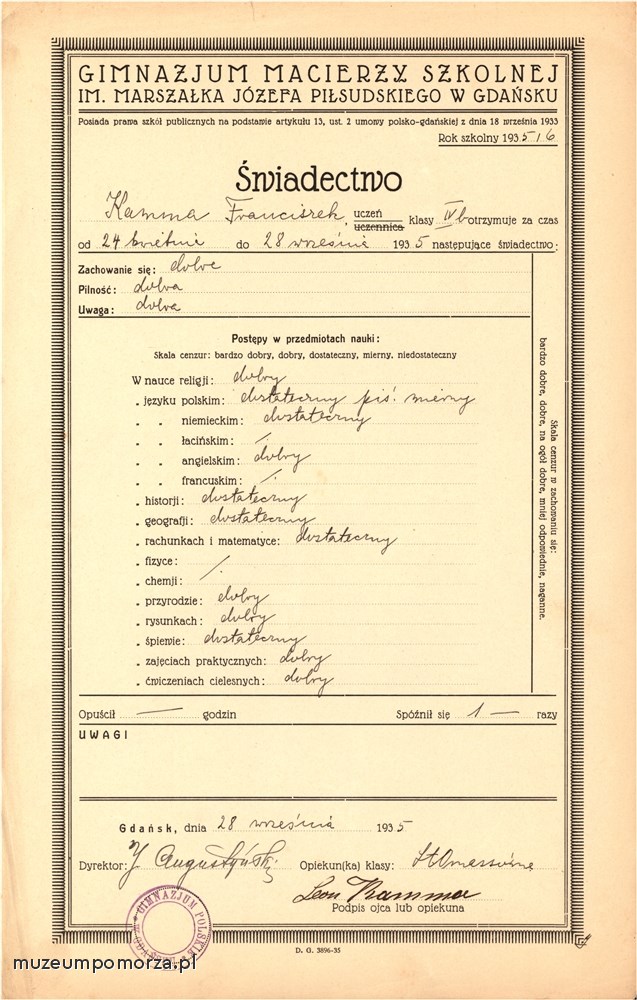 GIMNAZJUM MACIERZY SZKOLNEJ
IM. MARSZAŁKA JÓZEFA PIŁSUDSKIEGO W GDAŃSKU
Posiada prawa szkół publicznych na podstawie artykułu 13, ust. 2 umowy polsko-gdańskiej z dnia 18 września 1933
Rok szkolny 1935/6
Świadectwo
Kamma Franciszek, uczeń uczennica klasy IV b otrzymuje za czas
od 24 kwietnia do 28 września 1935 następujące świadectwo:
Zachowanie się: dobre
Pilność: dobra
Uwaga: dobra
Postępy w przedmiotach nauki:
Skala cenzur: bardzo dobry, dobry, dostateczny, mierny, niedostateczny
W nauce religji: dobry
„ języku polskim: dostateczny piś. mierny
„ „ niemieckim: dostateczny
„ „ łacińskim: /.
„ „ angielskim: dobry
„ „ francuskim: /.
„ historji: dostateczny
„ geografji: dostateczny
„ rachunkach i matematyce: dostateczny
„ fizyce: /.
„ chemji:
„ przyrodzie: dobry
„ rysunkach: dobry
„ śpiewie: dostateczny
„ zajęciach praktycznych: dobry
„ ćwiczeniach cielesnych: dobry
Skala cenzur w zachowaniu się:
bardzo dobre, dobre, na ogół dobre, mniej odpowiednie, naganne.
Opuścił — godzin Spóźnił się 1 — razy
UWAGI
Gdańsk, dnia 28 września 1935
Dyrektor: J Augustyński Opiekun(ka) klasy:
Leon Kamma
Podpis ojca lub opiekuna
GIMNAZJUM POLSKIE
D. G. 3896-35
muzeumpomorza.pl